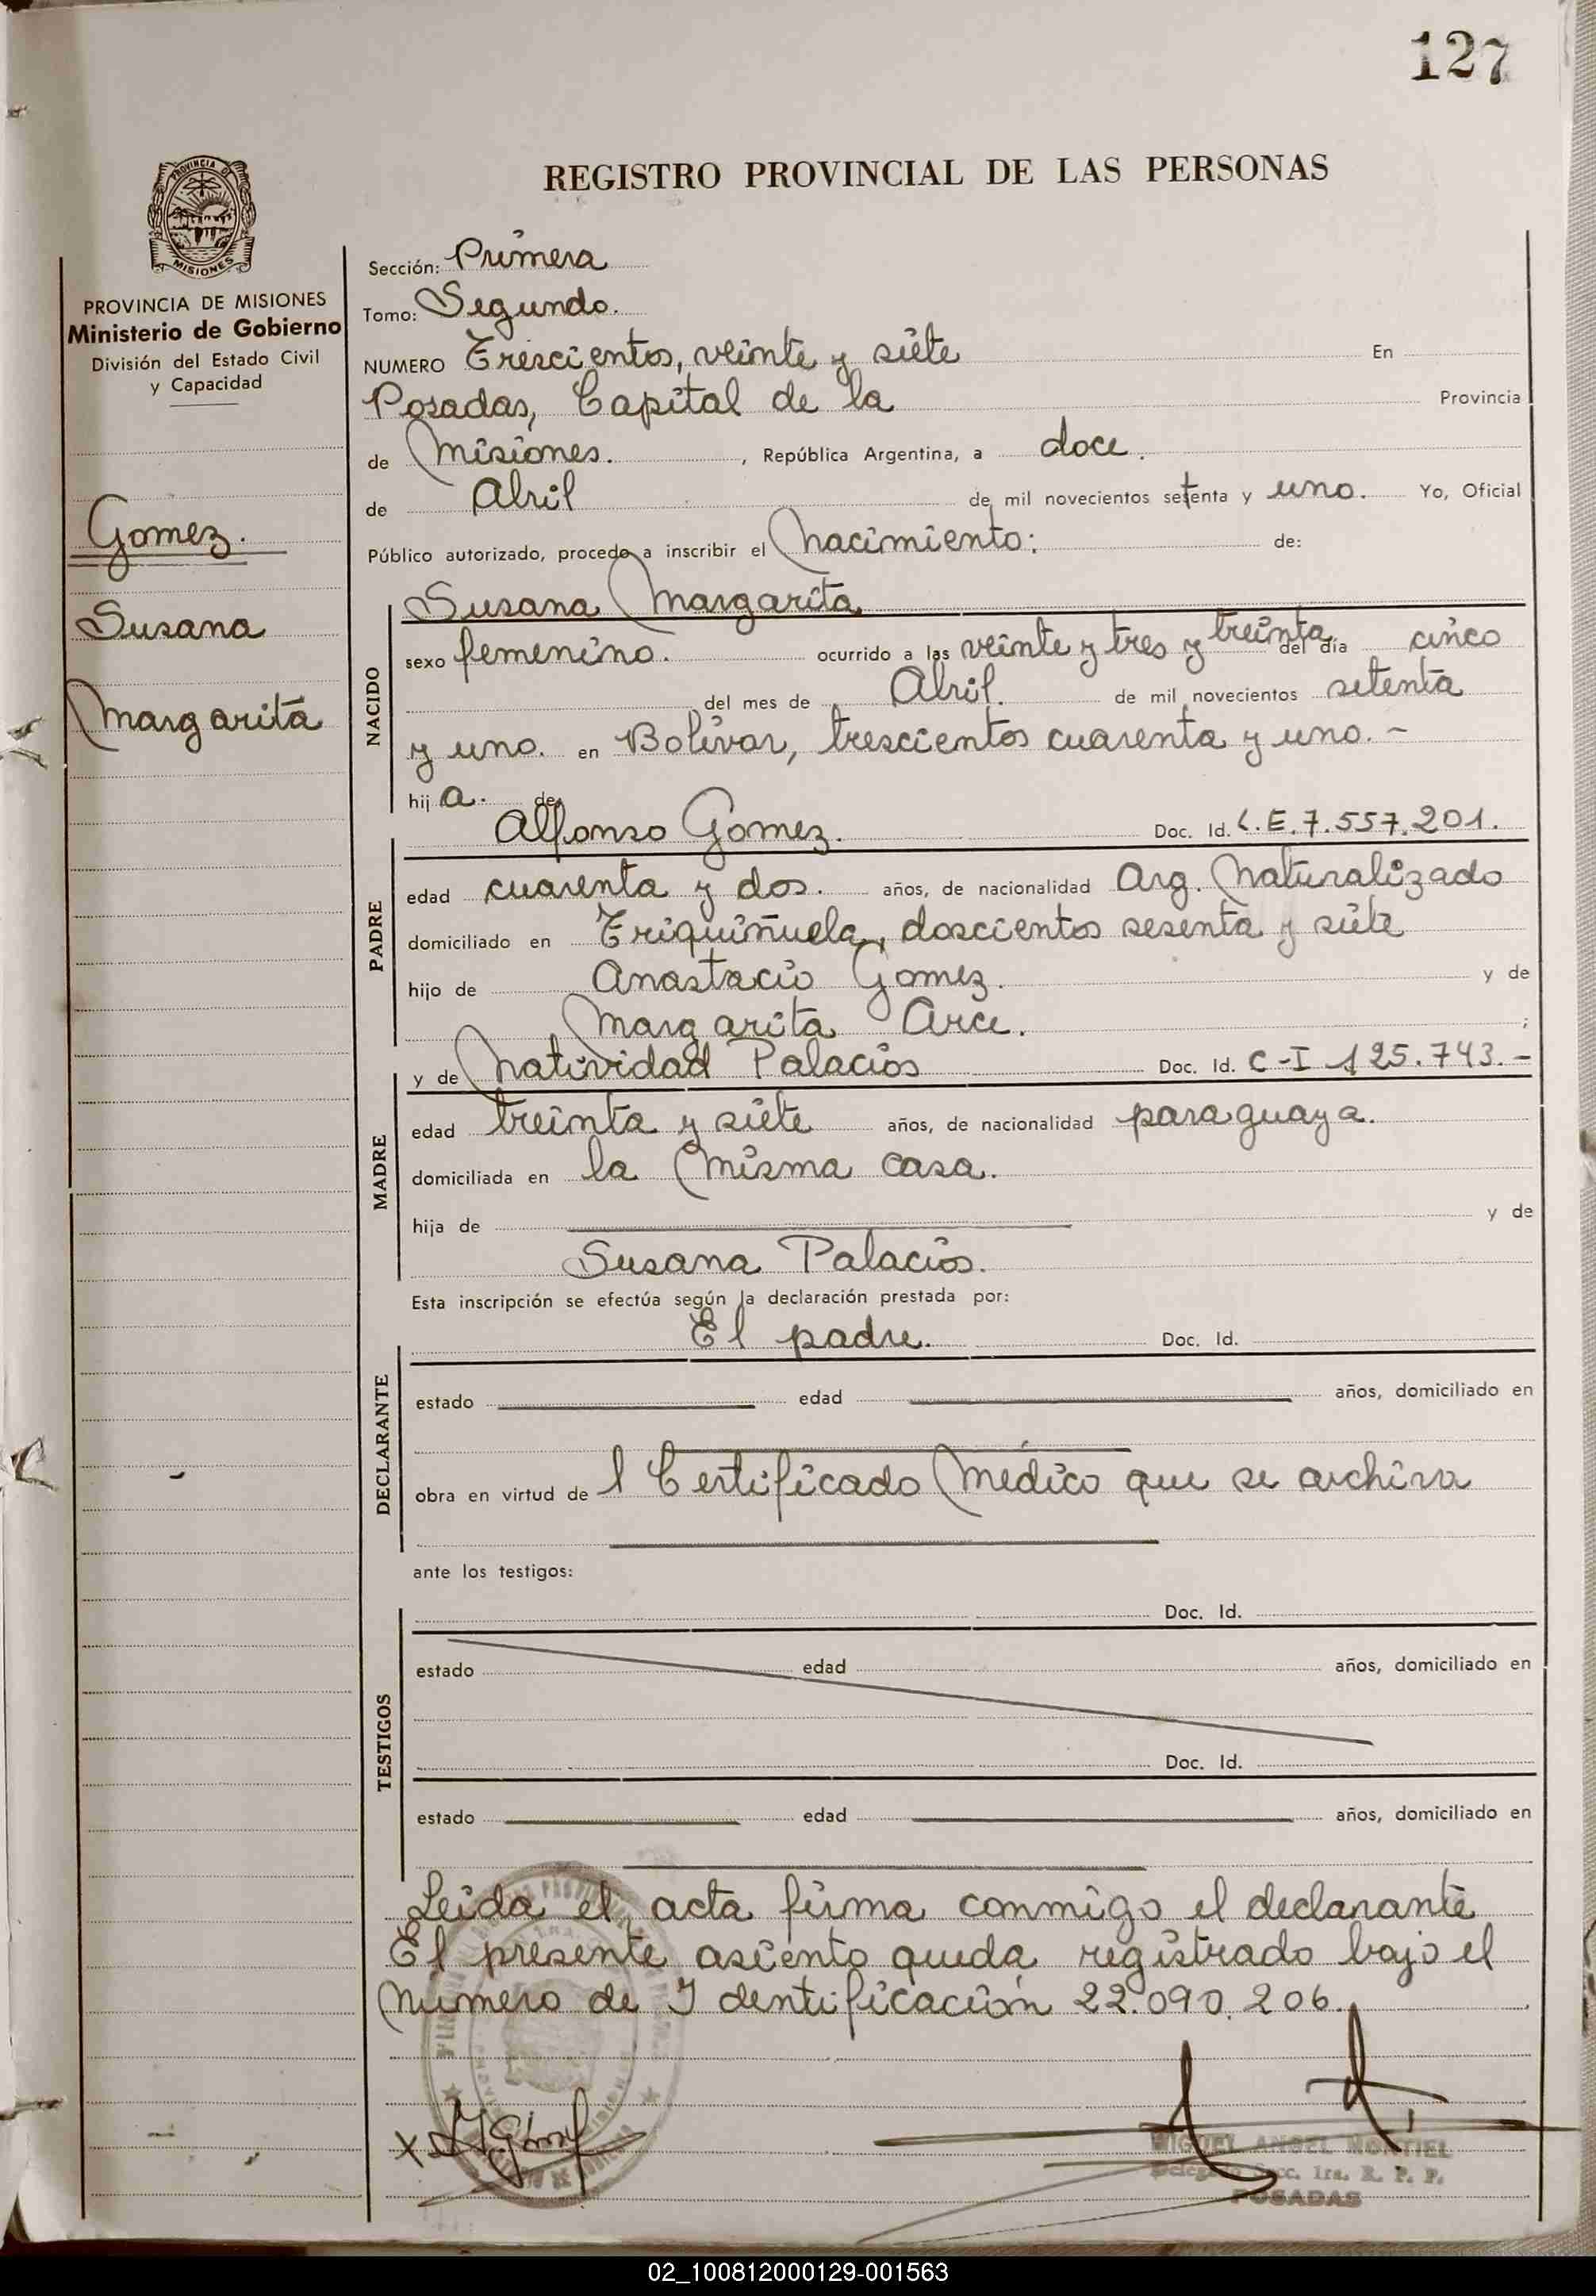 127
REGISTRO PROVINCIAL DE LAS PERSONAS
PROVINCIA DE
MISIONES
PROVINCIA DE MISIONES
Ministerio de Gobierno
División del Estado Civil
y Capacidad
Gomez.
Susana
Margarita
Sección: Primera
Tomo: Segundo.
NUMERO Trescientos, veinte y siete En
Posadas, Capital de la Provincia
de Misiones. , República Argentina, a doce.
de Abril de mil novecientos setenta y uno. Yo, Oficial
Público autorizado, procedo a inscribir el Nacimiento: de:
Susana Margarita
NACIDO
sexo femenino. ocurrido a las veinte y tres y treinta del día cinco
del mes de Abril. de mil novecientos setenta
y uno. en Bolívar, trescientos cuarenta y uno. -
hij a. de
Alfonso Gomez. Doc. Id. L.E. 7.557.201.
PADRE
edad cuarenta y dos. años, de nacionalidad Arg. Naturalizado
domiciliado en Triquiñuela, doscientos sesenta y siete
hijo de Anastacio Gomez. y de
Margarita Arce. ;
y de Natividad Palacios Doc. Id. C-I 125.743.-
MADRE
edad treinta y siete años, de nacionalidad paraguaya.
domiciliada en la misma casa.
hija de y de
Susana Palacios.
Esta inscripción se efectúa según la declaración prestada por:
El padre. Doc. Id.
DECLARANTE
estado edad años, domiciliado en
obra en virtud de l Certificado Médico que se archiva
ante los testigos:
Doc. Id.
TESTIGOS
estado edad años, domiciliado en
Doc. Id.
estado edad años, domiciliado en
Leida el acta firma conmigo el declarante
El presente asiento queda registrado bajo el
Número de Identificación 22.090.206.
MIGUEL ANGEL MONTIEL
Delegado Secc. 1ra. R. P. P.
POSADAS
02_100812000129-001563